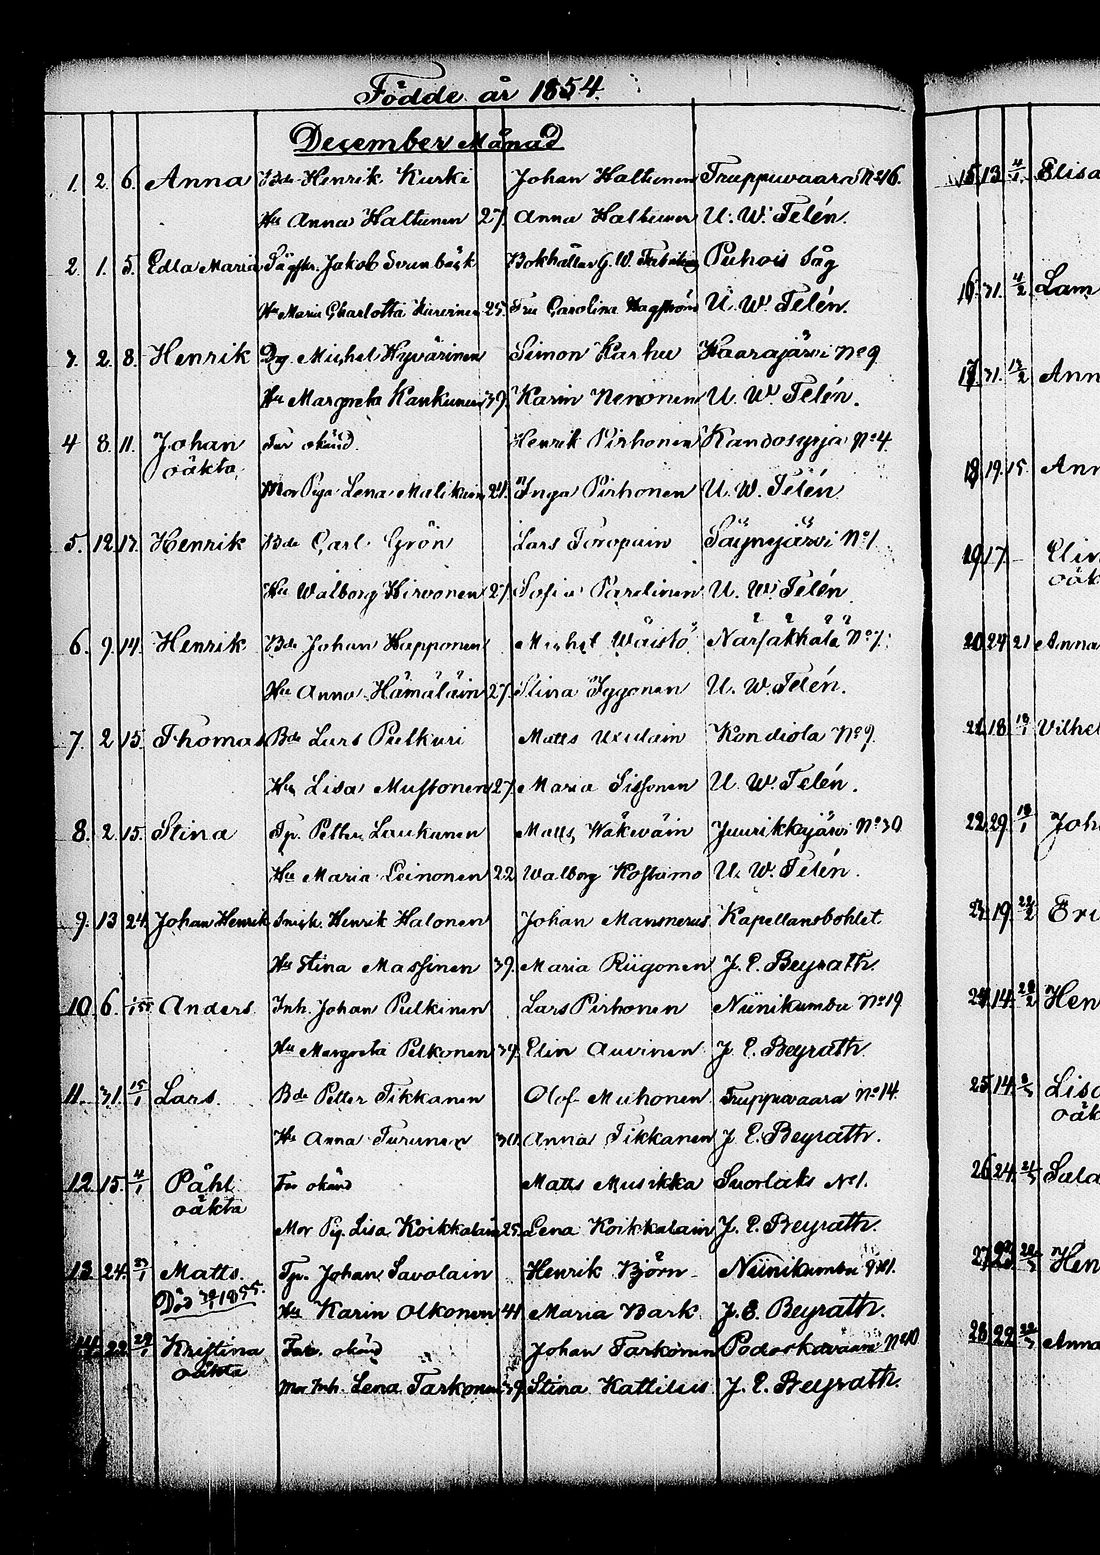 Födde år 1854.
December Månad
1. 2. 6. Anna Bde Henrik Kurki Johan Haltunen Truppuvaara No 16.
Hu Anna Haltunen 27. Anna Haltunen U. W. Telén.
2. 1. 5. Edla Maria Jakob Svunbäck Bokhållar G. W. Puhois Såg
Hu Maria Charlotta 25. Fru Carolina Hagström U. W. Telén.
3. 2. 8. Henrik Drg Michel Hyvärinen Simon Karhu Haarajärvi No 9
Hu Margreta Kaukunen 39. Karin Nenonen U. W. Telén.
4 8. 11. Johan Far okänd. Henrik Pirhonen No 4.
oäkta,
Mor Piga Lena 24. Inga Pirhonen U. W. Telén
5. 12. 17. Henrik Bde Carl Grön Lars Toropain Säynejärvi No 1
Hu Walborg Hirvonen 27. Sofia Parolinen U. W. Telén.
6. 9. 14. Henrik Bde Johan Happonen Michel Wäistö Närsäkkälä No 7.
Hu Anna Hämäläin 27. Stina Iygonen U. W. Telén.
7. 2. 15. Thomas Bde Lars Pulkuri Matts Kondiola No 9.
Hu Lisa Mustonen 27. Maria Sissonen U. W. Telén.
8. 2. 15. Stina Tp. Petter Laukanen Matts Wäkeväin Juurikkajärvi No 30
Hu Maria Leinonen 22 Walborg Kostamo U. W. Telén.
9. 13 24. Johan Henrik Henrik Halonen Johan Mansnerus Kapellansbohlet
Hu Stina Massinen 39. Maria Riigonen J. E. Beyrath.
10. 6. Anders. Inh. Johan Pulkinen Lars Pirhonen Niinikumbu No 19
Hu Margreta Pelkonen 34. Elin Auvinen J. E. Beyrath.
11. 31. 15/1 Lars. Bde Petter Tikkanen Olof Muhonen Truppuvaara No 14.
Hu Anna Turunen 30. Anna Tikkanen J. E. Beyrath.
12. 15. 4/1 Påhl Far okänd Matts Musikka Suorlaks No 1.
oäkta
Mor Pig. Lisa Koikkalain 25. Lena Koikkalain J. E. Beyrath.
13. 24. Matts. Tp. Johan Savolain Henrik Björn Niinikumbu
Död 1855.
Hu Karin Olkonen 41. Maria Bark J. E. Beyrath.
14. 22. Kristina Far. okänd Johan Tarkonen No 10
oäkta
Mor Inh. Lena Tarkonen 39. Stina Kattilus J. E. Beyrath.
15. 13. 4/1 Elisa
16. 31. 4/2 Lam
17. 31. Ann
18. 19. 15. Ann
19. 17. Elin
oäk
20. 24. 21. Anna
21. 18. Vilhel
22. 29. Joh
23. 19. Eri
24. 14. Hen
25. 14. Lisa
oäkt
26. 24. Sala
27. Hen
28. 22. Anna